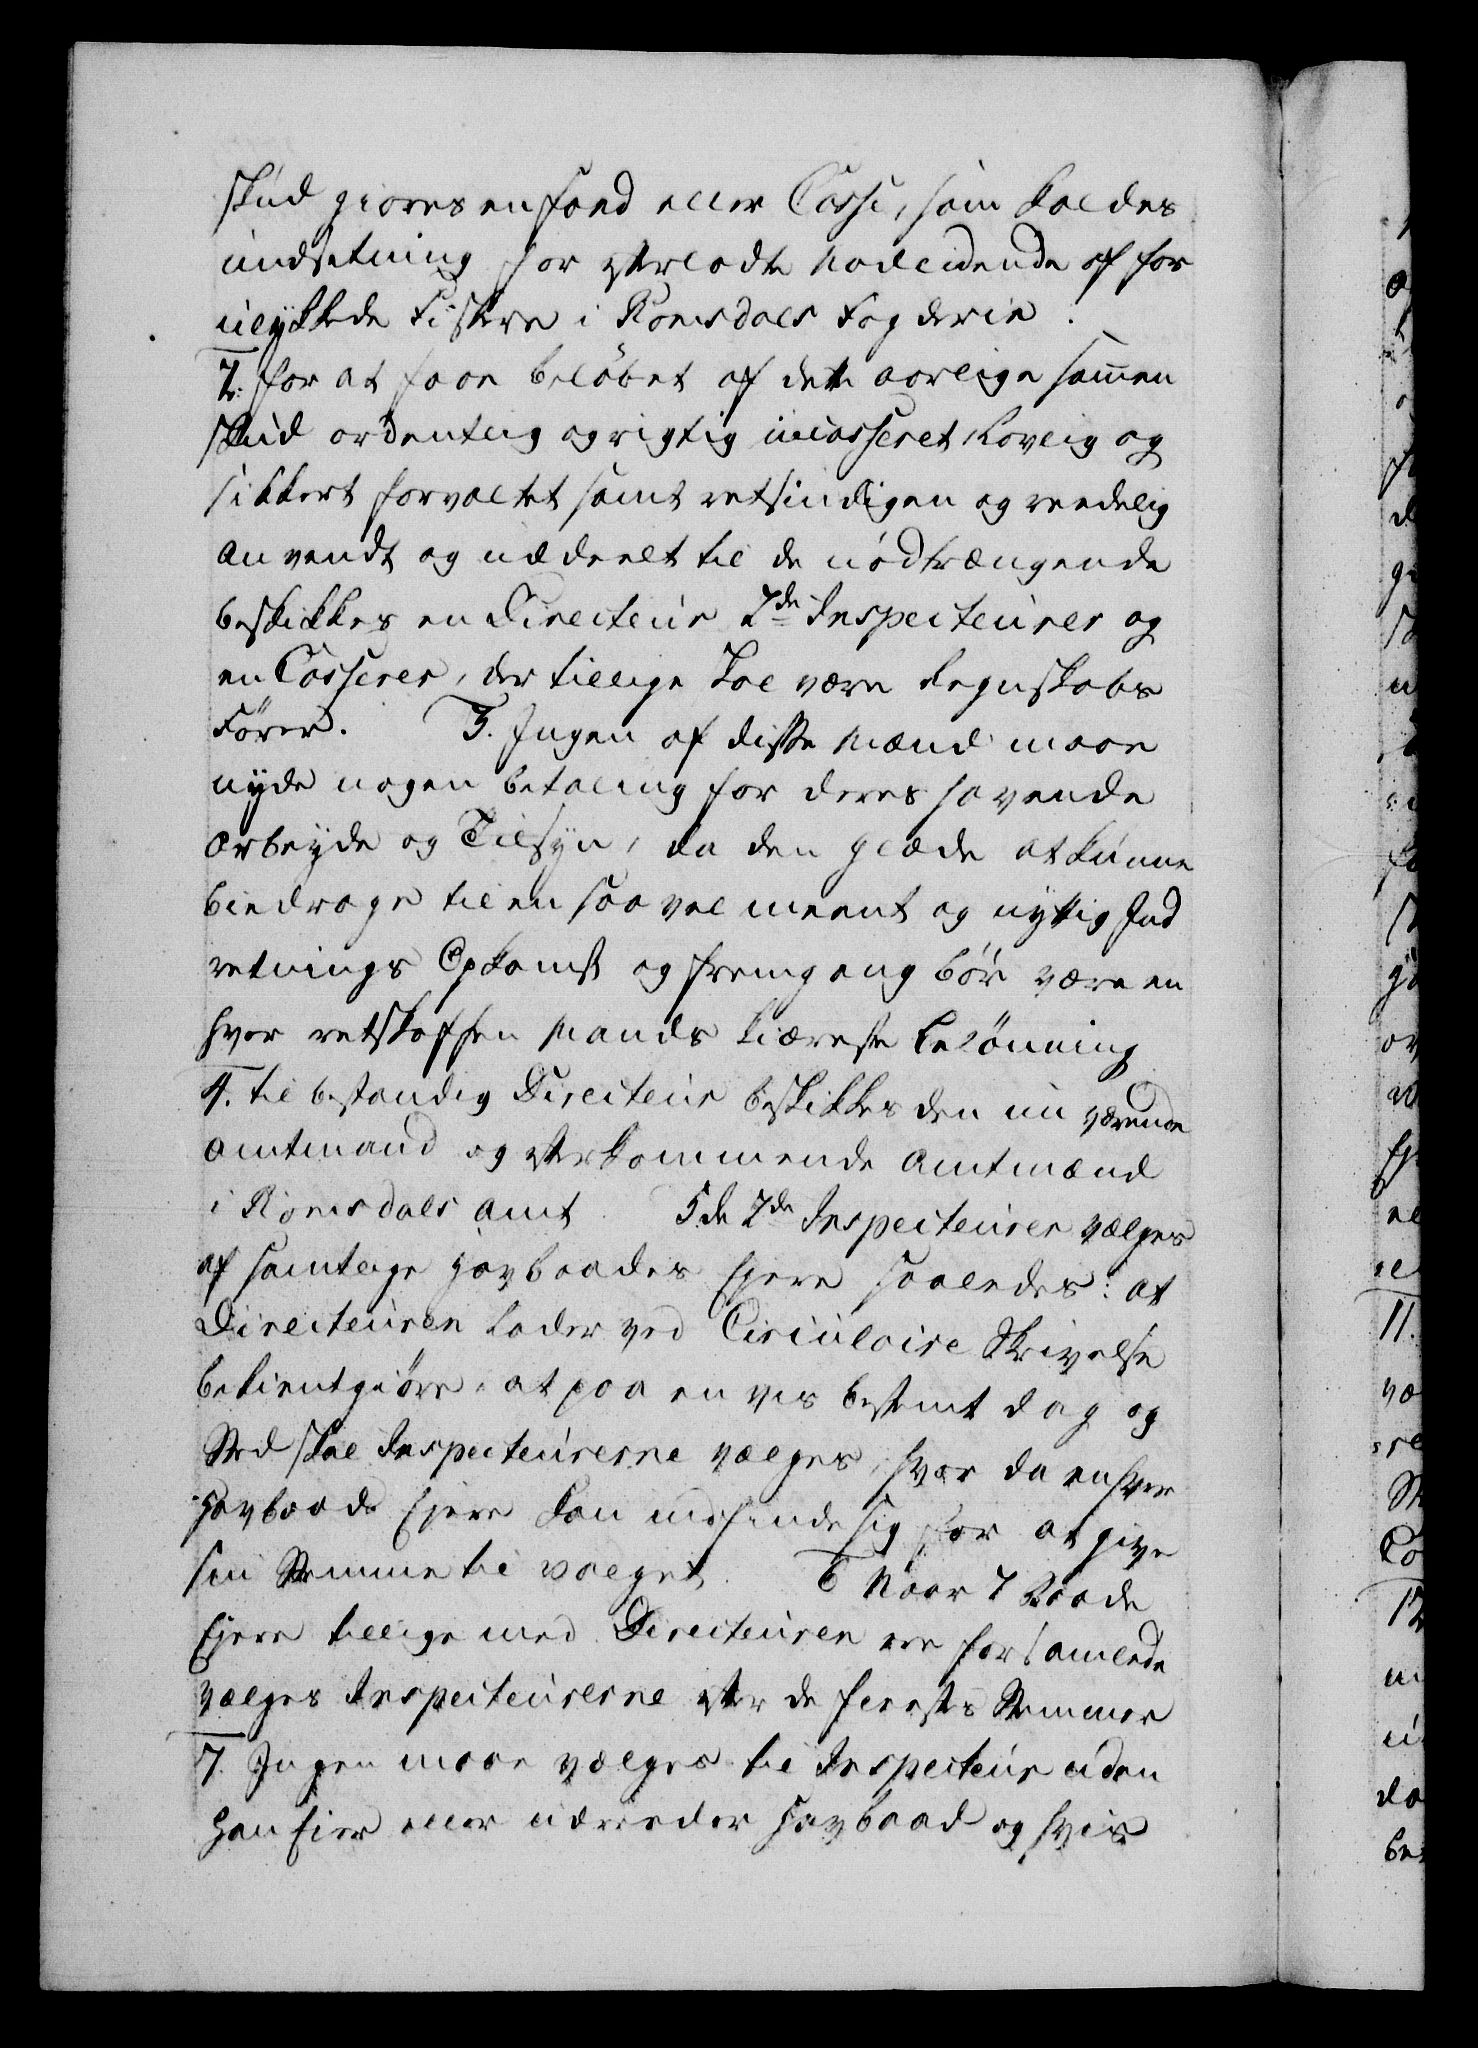 skud giøres en fond eller Casse, som kaldes
undsetning for efterladte Nødlidende af for
ulykkede Fiskere i Romsdals Fogderie.
2. for at faae beløbet af dette aarlige sammen
skud ordentlig og rigtig incasseret, lovlig og
sikkert forvaltet samt retsindigen og reedelig
anvendt og uddeelt til de nødtrængende
beskikkes en Directeur 2de Inspecteurer og
en Casserer, der tillige skal være Regnskabs
Fører. 3. Ingen af disse Mænd maae
nyde nogen betaling for deres havende
Arbeyde og Tilsyn, da den glæde at kunne
biedrage til en saa vel meent og nyttig Ind
retnings Opkomst og fremgang bør være en
hver retskaffen Mands kiæreste belønning
4. til bestandig Directeur beskikkes den nu værende
Amtmand og efterkommende Amtmænd
i Romsdals Amt 5. de 2de Inspecteurer vælges
af samtlige Havbaades Ejere saaledes: at
Directeuren lader ved Circulaire Skrivelse
bekientgiøre, at paa en vis bestemt dag og
Sted skal Inspecteurerne vælges, hvor da enhver
Havbaads Ejere kan indfinde sig for at give
sin Stemme til valget. 6 Naar 7 Baade
Ejere tillige med Directeuren ere forsamlede
vælges Inspecteurerne efter de fleeste Stemmer
7. Ingen maae vælges til Inspecteur uden
han Eier eller udreeder Havbaad og hvis